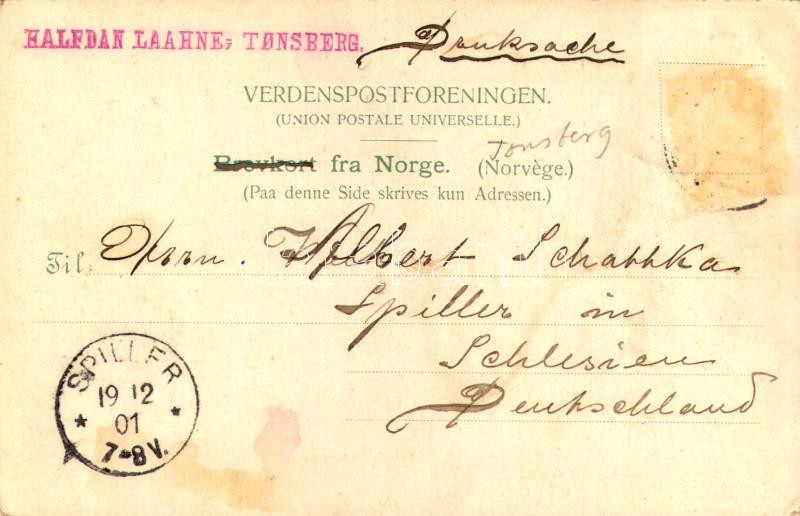 HALFDAN LAAHNE, TØNSBERG. Druksache
VERDENSPOSTFORENINGEN.
(UNION POSTALE UNIVERSELLE.)
Tonsberg
Brevkort fra Norge. (Norvège.)
(Paa denne Side skrives kun Adressen.)
Til Herrn. Albert Schattka
Spiller in
Schlesien
Deutschland
SPILLER
19 12
01
7-8V.